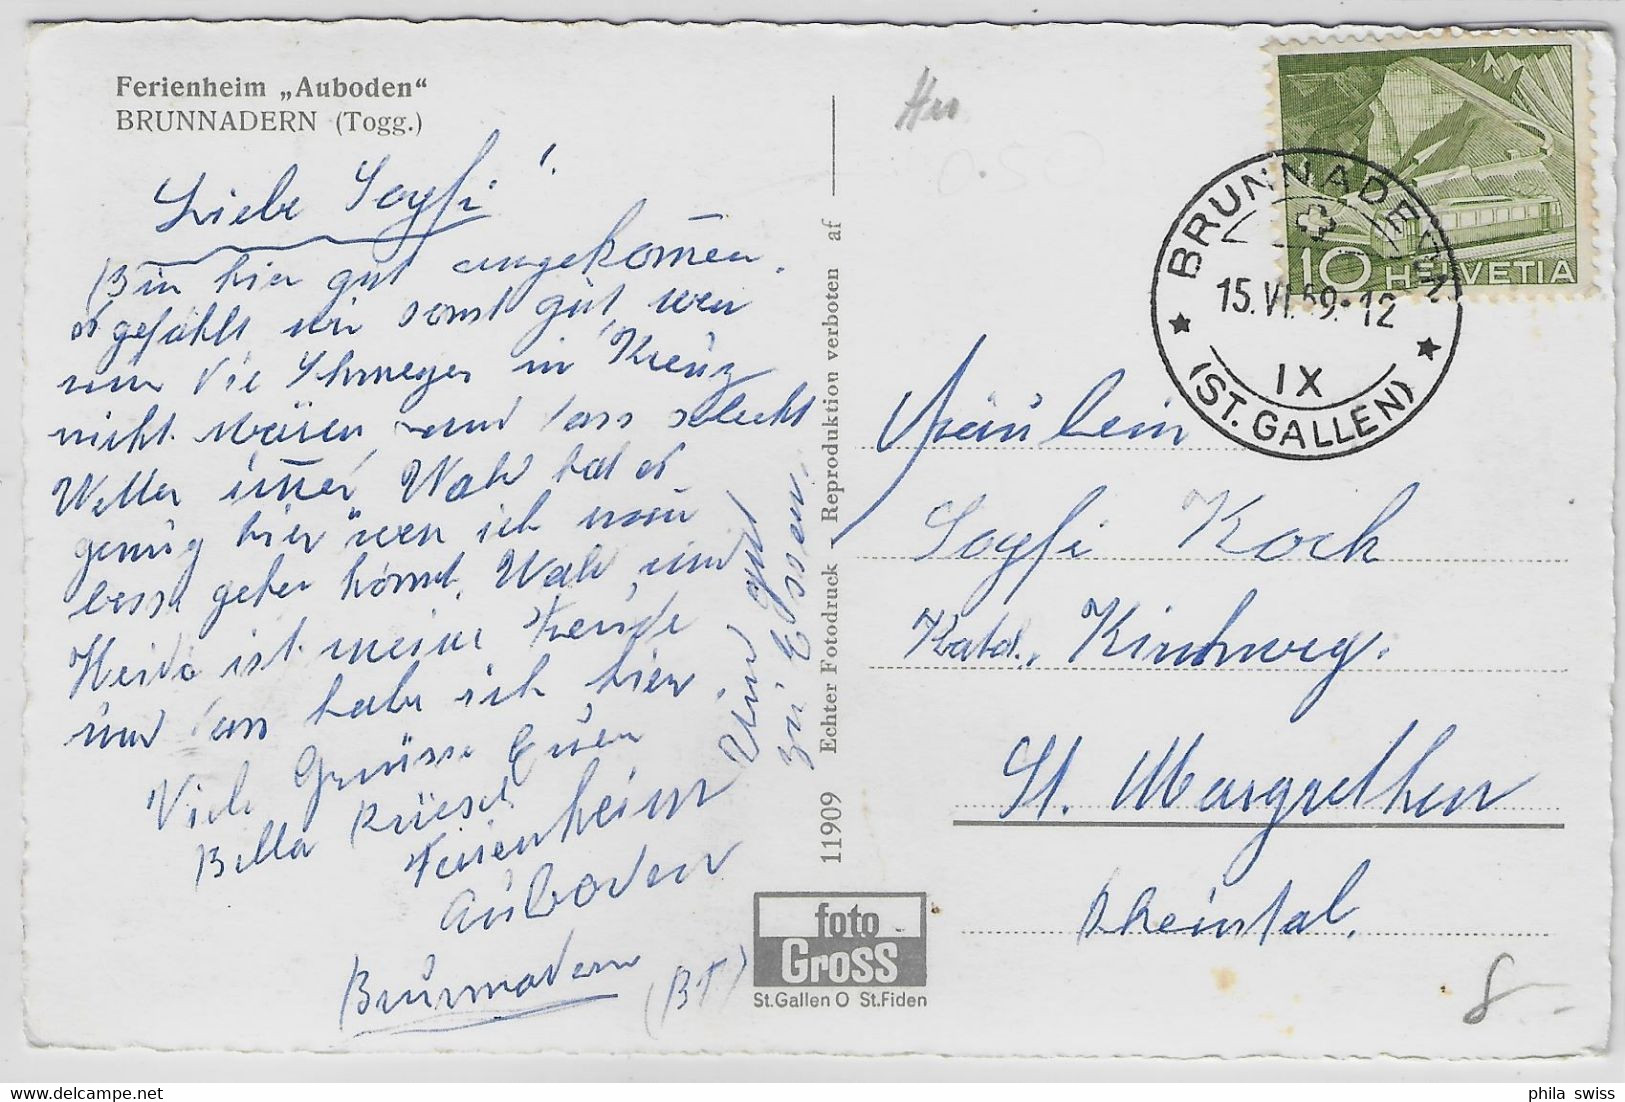 Ferienheim „Auboden“
BRUNNADERN (Togg.)
Liebe Soyfi!
Bin hier gut angekommen.
es gefählt mir sonst gut, wen
nur die in Kreuz
nicht wären und dass schlecht
Wetter immer. Wald hat es
genug hier wen ich nur
besser gehen könnt. Wald und
Heide ist meine Freude
und dass habe ich hier.
Viele Grüsse Euer
Bella Rüesch
Ferienheim
Auboden
Brunnadern (BT)
Und gut
zu Essen.
11909 Echter Fotodruck - Reproduktion verboten af
foto
Gross
St.Gallen O St.Fiden
10 HELVETIA
BRUNNADERN
15.VI.59.-12
IX
(ST. GALLEN)
Fräulein
Soyfi Koch
Kath. Kirchweg.
St. Margrethen
Rheintal.
8.-
phila swiss